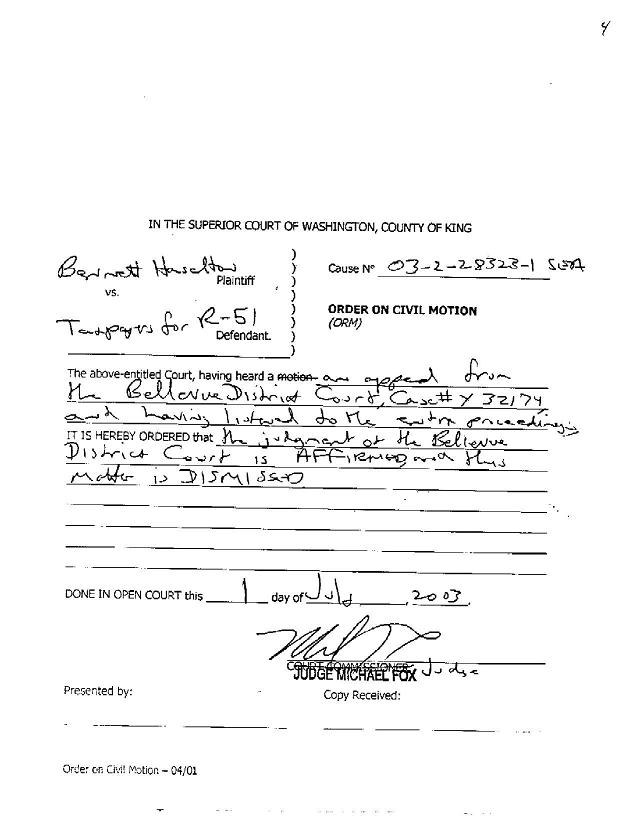 4
IN THE SUPERIOR COURT OF WASHINGTON, COUNTY OF KING
Bennett Haselton
Plaintiff
vs.
Taxpayers for R-51
Defendant.
Cause Nº 03-2-28323-1 SEA
ORDER ON CIVIL MOTION
(ORM)
The above-entitled Court, having heard a motion an appeal from
the Bellevue District Court, Case# Y 32174
and having listened to the entire proceedings
IT IS HEREBY ORDERED that the judgment of the Bellevue
District Court is AFFIRMED and this
matter is DISMISSED
DONE IN OPEN COURT this 1 day of July, 2003.
COURT COMMISSIONER Judge
JUDGE MICHAEL FOX
Presented by:
Copy Received:
Order on Civil Motion – 04/01